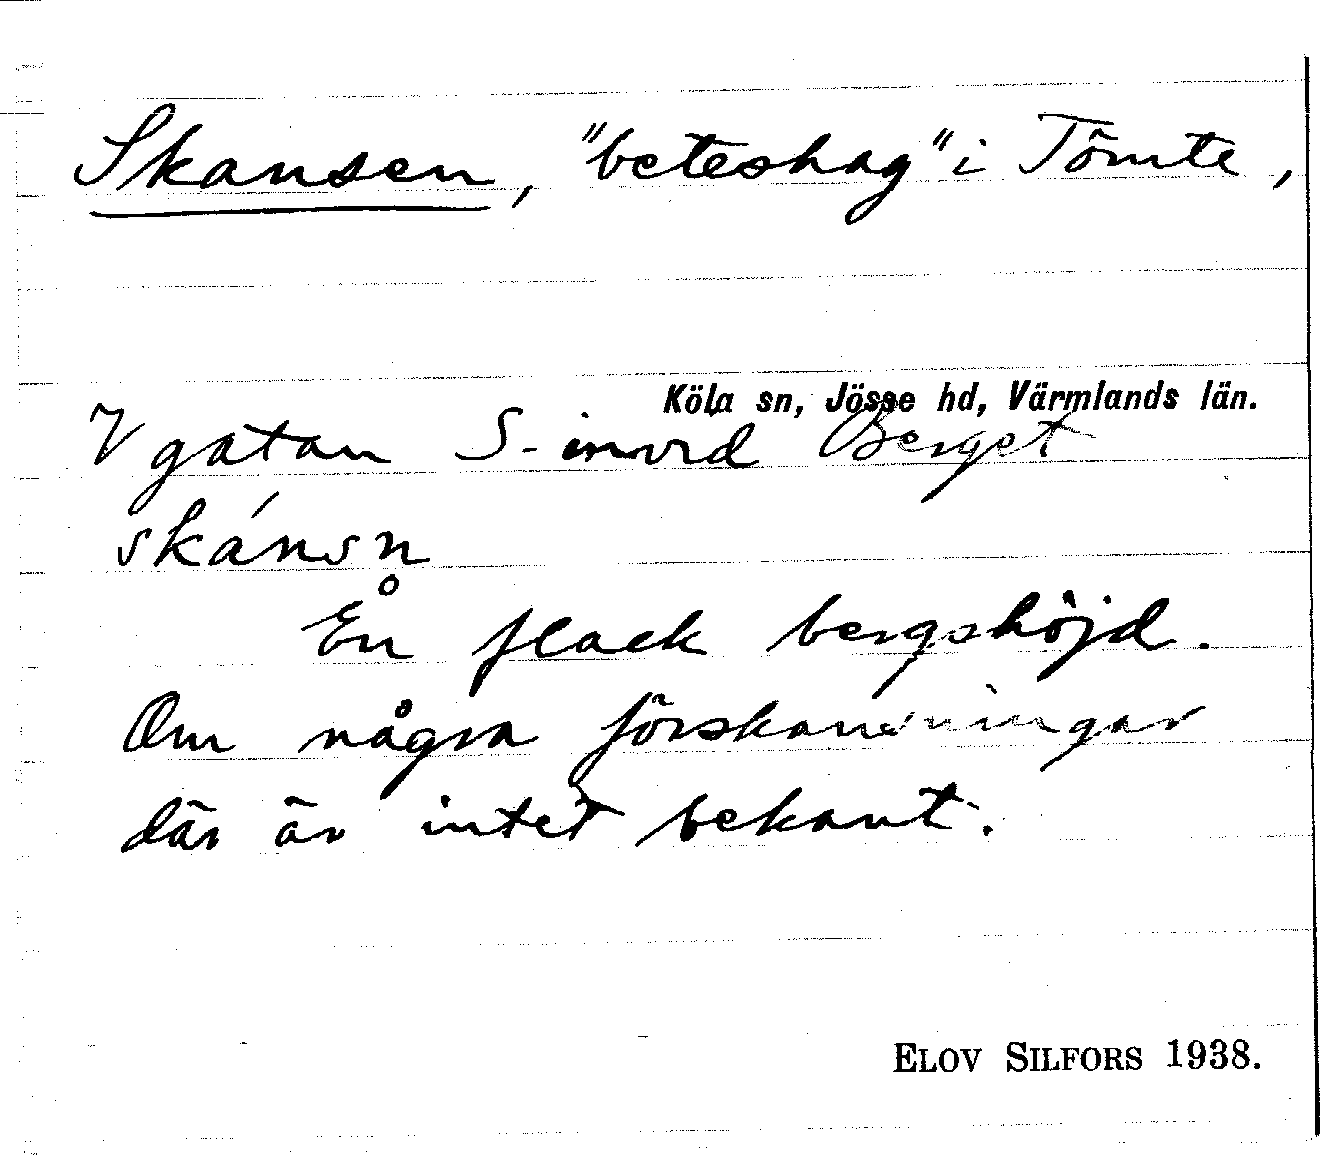 Skansen, "beteshag" i Tömte,
Köla sn, Jösse hd, Värmlands län.
V gatan S-invid Berget
skánsn̥
En flack bergshöjd.
Om några förskansningar
där är intet bekant.
ELOV SILFORS 1938.